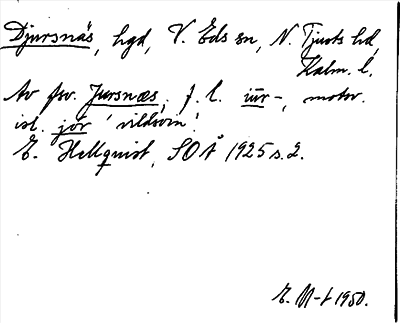 Djursnäs, hgd, V. Eds sn, N. Tjusts hd,
Kalm. l.
Av fsv. Jursnæs, f. l. iūr-, motsv.
isl. jǫr 'vildsvin'.
E. Hellquist, SOÅ 1925 s. 2.
E. M-t 1950.